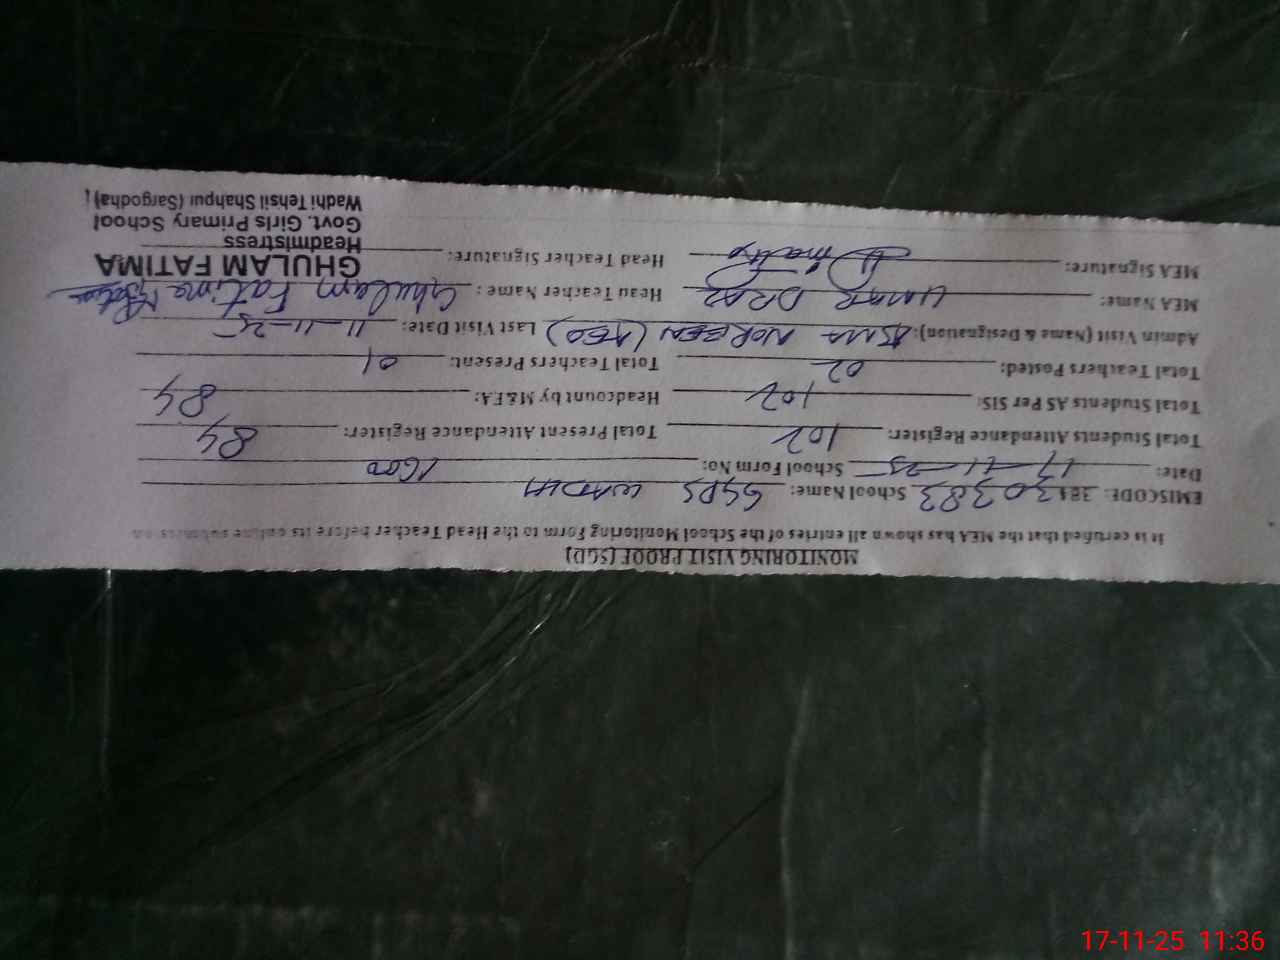 MONITORING VISIT PROOF (SGD)
It is certified that the MEA has shown all entries of the School Monitoring Form to the Head Teacher before its online submission
EMISCODE: 38430383 School Name: GGPS WADHI
Date: 17-11-25 School Form No: 1600
Total Students Attendance Register: 102 Total Present Attendance Register: 84
Total Students AS Per SIS: 102 Headcount by M&EA: 84
Total Teachers Posted: 02 Total Teachers Present: 01
Admin Visit (Name & Designation): ASMA NOREEN (AEO) Last Visit Date: 11-11-25
MEA Name: UMAR DRAZ Head Teacher Name: Ghulam Fatima
MEA Signature: Head Teacher Signature:
GHULAM FATIMA
Headmistress
Govt. Girls Primary School
Wadhi Tehsil Shahpur (Sargodha)
17-11-25 11:36